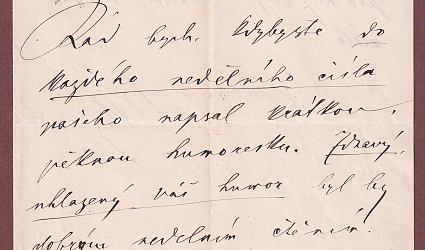 Rád bych, kdybyste do
každého nedělního čísla
našeho napsal krátkou,
pěknou humoresku. Zdravý,
uhlazený váš humor byl by
dobrým nedělním čtením.